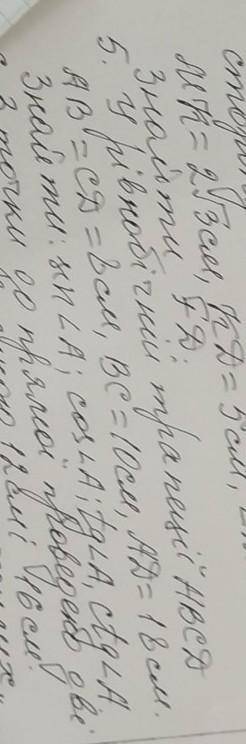 МК = 2√3 см, КD = 5 см,
Знайти FD.
5. У рівнобічній трапеції ABCD
AB = CD = 8 см, BC = 10 см, AD = 18 см.
Знайти: sin∠A; cos∠A; tg∠A, ctg∠A
З точки до прямої проведено дві
12 см і 16 см.